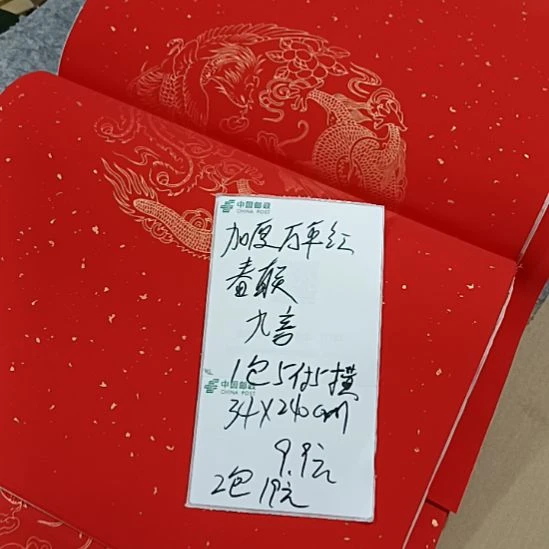 中国邮政
CHINA POST
加厚万年红
春联
九言
1包5付5横
中国邮政
CHINA POST
34×240cm
9.9元
2包19元